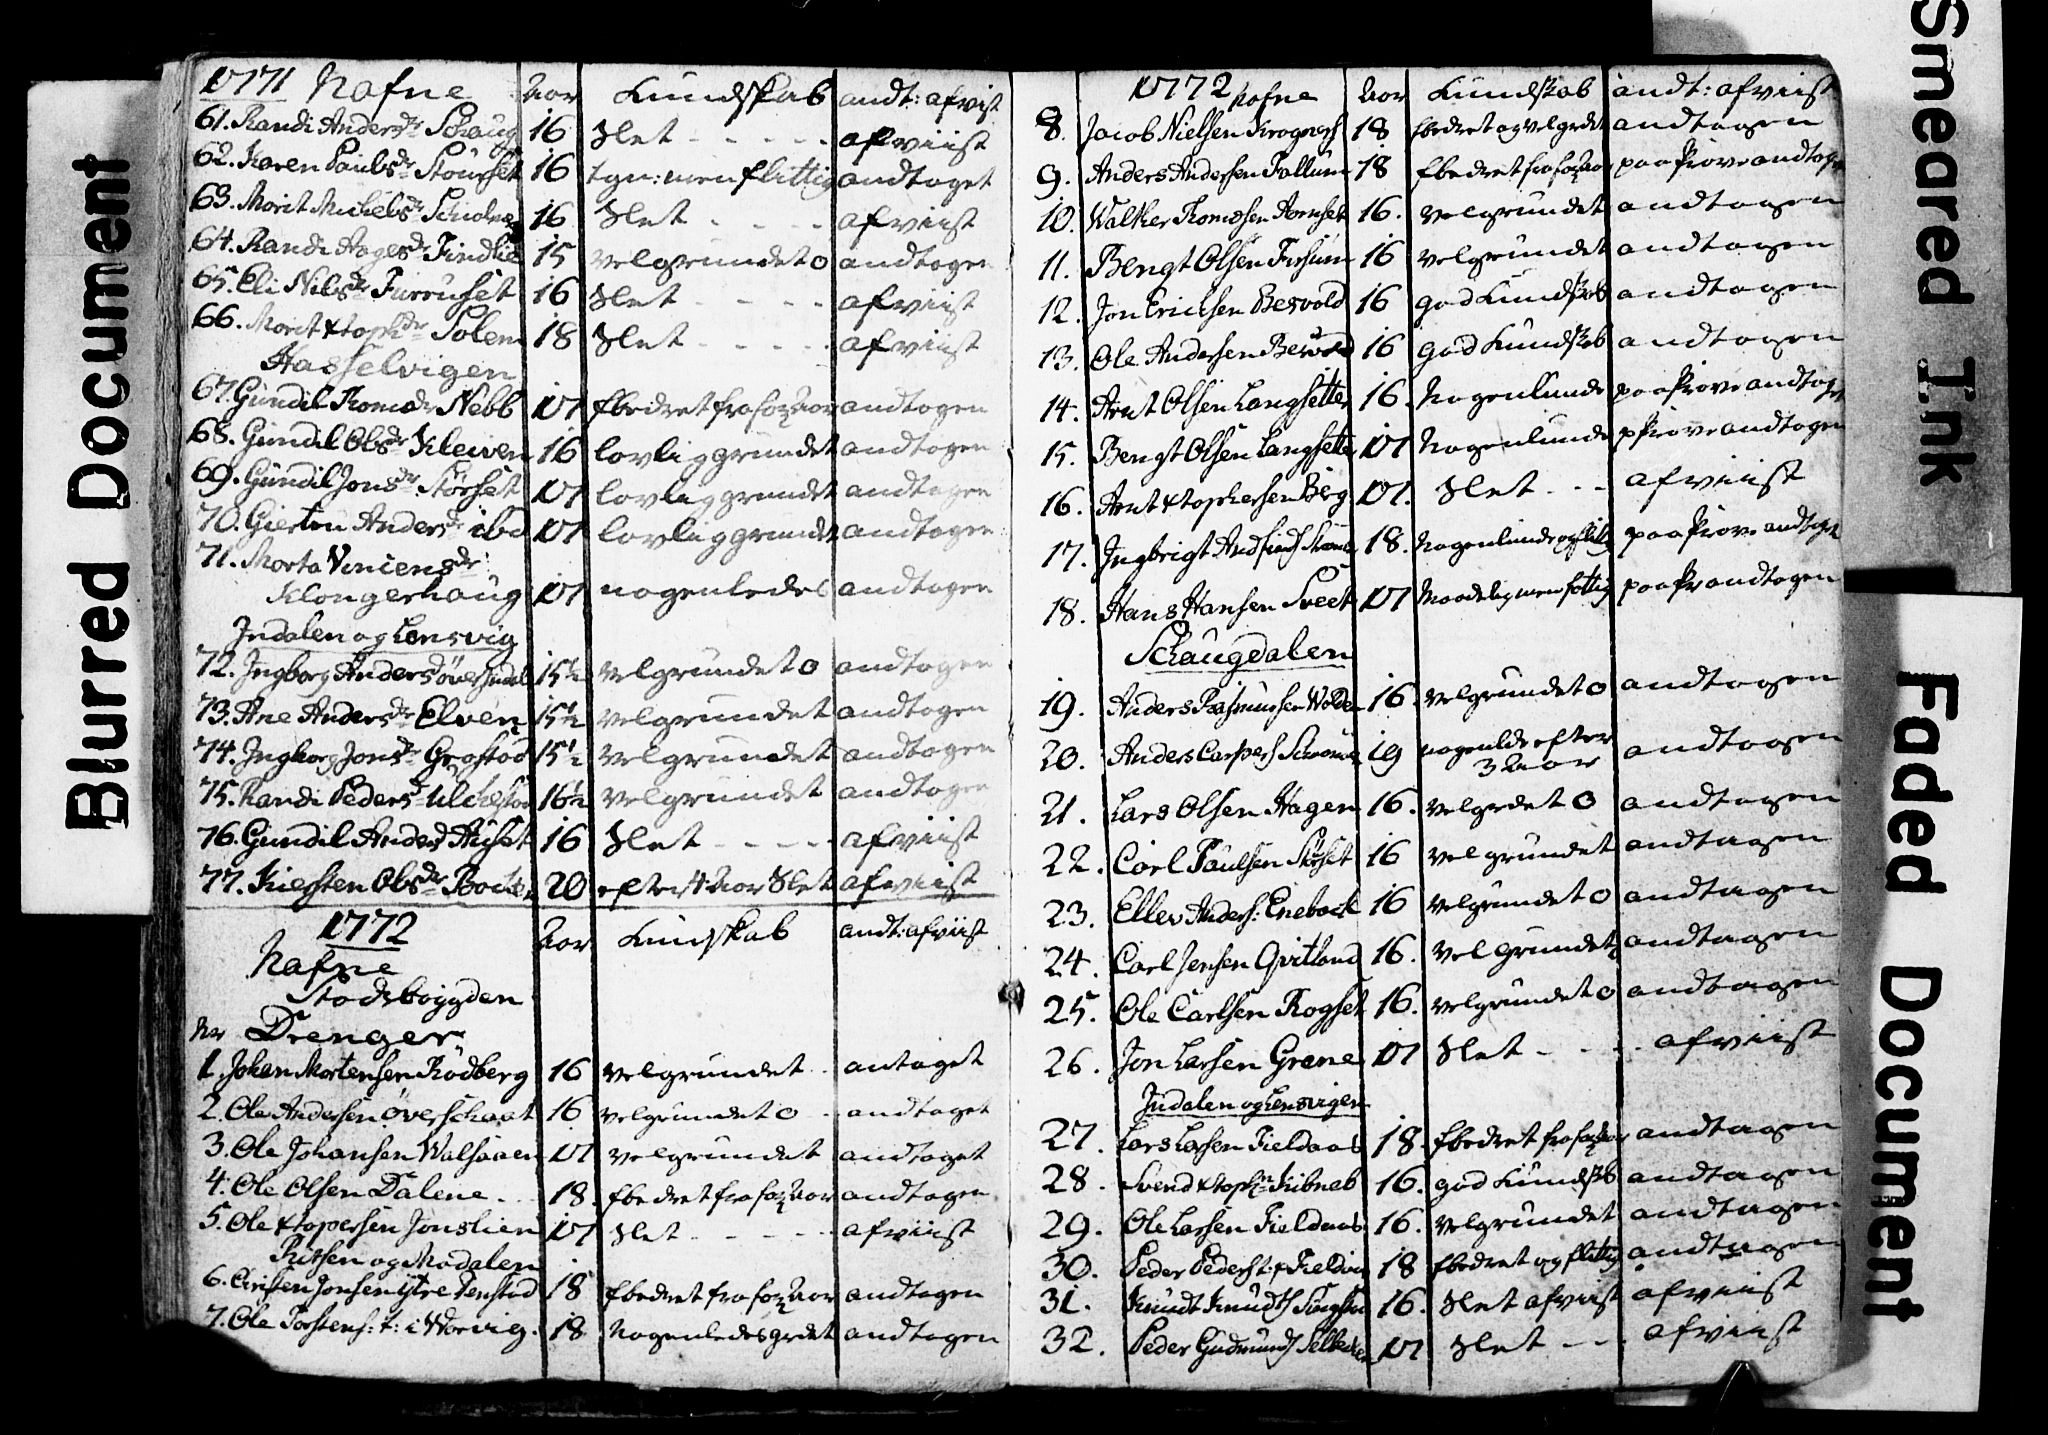 Blurred Document
1771 Nafne Aar Kundskab andt: afvist
61. Randi Andersdr Schaug 16 Slet - - - - afviist
62. Karen Paulsdr Stourset 16 tgn: men flittig andtaget
63. Marit Michelsdr 16 Slet - - - - afviist
64. Randi Aagesdr Findlie 15 velgrundet o andtagen
65. Eli Nilsdr Furruset 16 Slet - - - - afviist
66. Marit Xtophdr Solem 18 Slet - - - - afviist
Hasselvigen
67. Gundil Thomsdr Nebb 17 fbedret fra for Aar andtagen
68. Gundil Olsdr Kleiven 16 lovlig grundet andtagen
69. Gundil Jonsdr Störset 17 lovlig grundet andtagen
70. Giertru Andersdr ibd 17 lovlig grundet andtagen
71. Marta Vinciensdr
Klongerhaug 17 nogenledes andtagen
Indalen og Lensvig
72. Ingborg Andersd överindal 15½ velgrundet o andtagen
73. Ane Andersdr Elven 15½ velgrundet andtagen
74. Ingborg Jonsdr 15½ velgrundet andtagen
75. Randi Pedersdr 16½ velgrundet andtagen
76. Gundil Andersd Huset 16 Slet - - - - afviist
77. Kiersten Olsdr 20 efter 4 Aar Slet afviist
1772 Aar Kundskab andt: afviist
Nafne
Stadsbøygden
Nr Drenger
1. Johan Mortensen Rödberg 16 velgrundet antaget
2. Ole Andersen överschaat 16 velgrundet o andtaget
3. Ole Johansen Walsaaen 17 velgrundet andtaget
4. Ole Olsen Dalene 18. fbedret fra for Aar andtagen
5. Ole Xtopersen Jonslien 17 Slet - - - - afviist
Ritsen og Modalen
6. Cristen Jonsen ytre Fenstad 18 fbedret fra for Aar andtagen
7. Ole Torstens: t: i Worvig. 18 Nogenledes grdet andtagen
1772 Nafne Aar Kundskab andt: afviist
8. Jacob Nielsen 18 fbedret og velgrdet andtagen
9. Anders Andersen Fallum 18 fbedret fra for Aar paa Prove andtagen
10. Walther Thomesen 16. velgrundet andtagen
11. Bengt Olsen 16 velgrundet andtagen
12. Jon Ericksen Besvold 16 god Kundskab andtagen
13. Ole Andersen Besvold 16 god Kundskab andtagen
14. Arnt Olsen Langsetter 16. Nogenlunde paa Prove andtagen
15. Bengt Olsen Langsetter 17 Nogenlunde p Prove andtagen
16. Arnt Xtophersen Berg 17. Slet - - afviist
17. Ingbrigt 18. Nogenlunde og flittig paa Prove andtaget
18. Hans Hansen Sveet 17 Maadelig men flittig paa Pr andtagen
Schaugdalen
19. Anders Rasmussen Wolden 16. velgrundet o andtagen
20. Anders Caspers 19 nogenlde efter
3 Aar andtagen
21. Lars Olsen Hagen 16. velgrdet o andtagen
22. Carl Paulsen Störset 16 velgrundet andtagen
23. Ellev Anders: Eneback 16 velgrundet o andtagen
24. Carl Jensen Qvitland 16. velgrundet andtagen
25. Ole Carlsen Rogset 16. velgrundet o andtagen
26. Jon Larsen Grane 17 Slet - - - afviist
Indalen og Lensvigen
27. Lars Larsen Fieldaas 18. fbedret fra for Aar andtagen
28. Svend Xtophn 16. god Kundskb andtagen
29. Ole Larsen Fieldaas 16. velgrundet andtagen
30. Peder Peders 18 fbedret og flittig andtagen
31. Knudt Knudts 16. Slet afviist afviist
32. Peder Gudmunds 17 Slet - - afviist
Smeared Ink
Faded Document